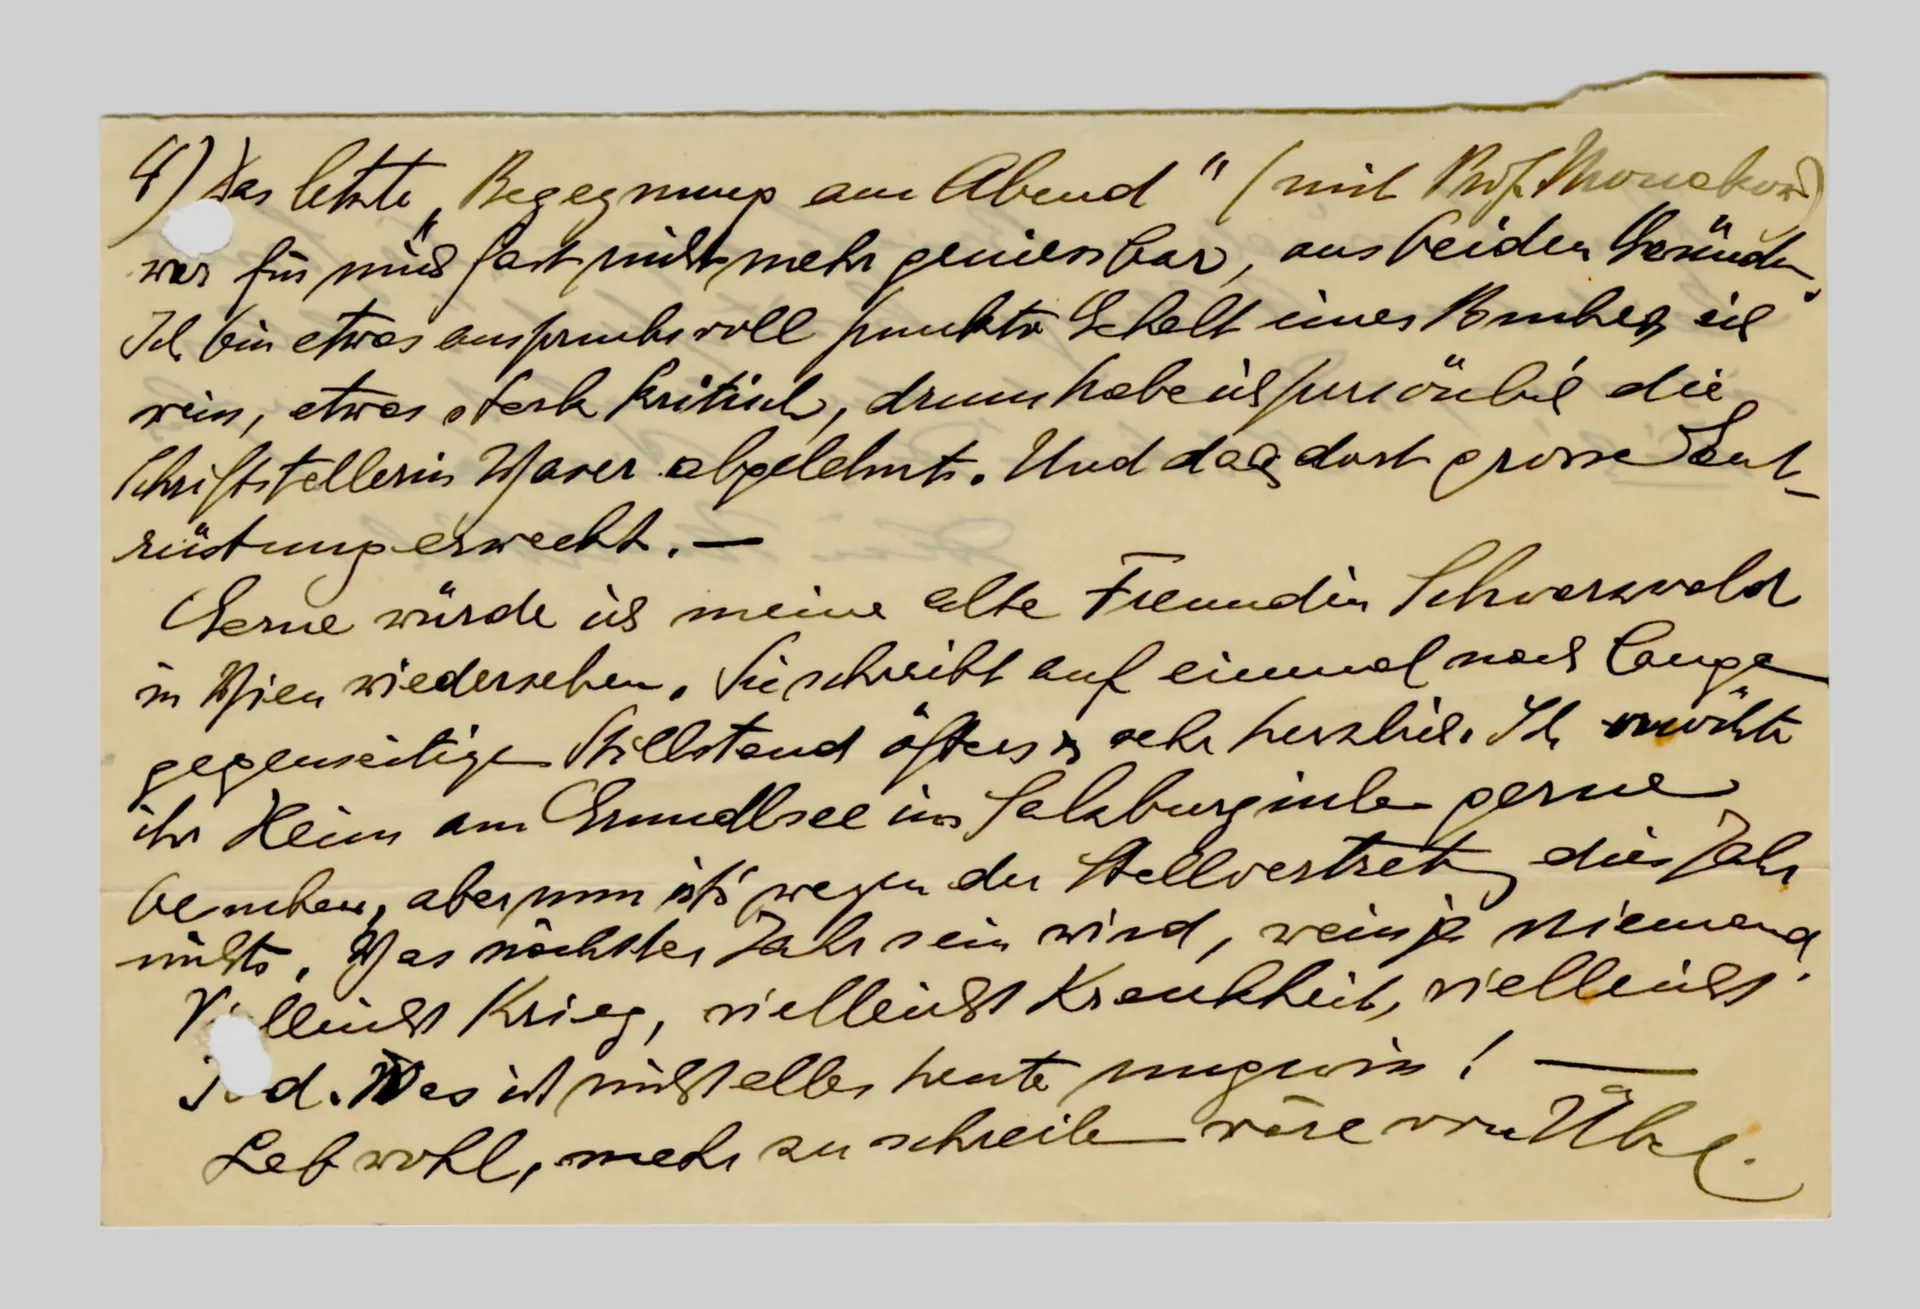 4) Das letzte „Begegnung am Abend" (mit Prof. Monakow)
war für mich fast nicht mehr geniessbar, aus beiden Gründen.
Ich bin etwas anspruchsvoll punkto Gehalt eines Buches, ich
weiss, etwas stark kritisch, drum habe ich persönlich die
Schriftstellerin Waser abgelehnt. Und das dort grosse Ent-
rüstung erweckt. —
Gerne würde ich meine alte Freundin Schwarzwald
in Wien wiedersehen. Sie schreibt auf einmal nach lange
gegenseitigen Stillstand öfters & sehr herzlich. Ich möchte
ihr Heim am Grundlsee im Salzburgischen gerne
besuchen, aber nun ist's wegen der Stellvertretg dies Jahr
nichts. Was nächstes Jahr sein wird, weiss ja niemand.
Vielleicht Krieg, vielleicht Krankheit, vielleicht
Tod. Was ist nicht alles heute ungewiss! —
Leb wohl, mehr zu schreiben wäre von Übel.